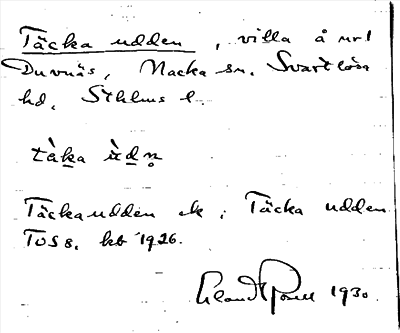 Täcka udden, villa å nr 1
Duvnäs, Nacka sn. Svartlösa
hd, Sthlms l.
tàka ùdn̥
Täckaudden ek; Täcka udden
TOS 8. kb 1926.
1930.